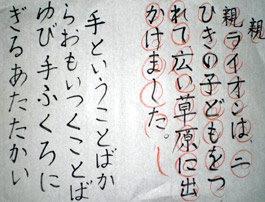 親
親ライオンは、二
ひきの子どもをつ
れて広い草原に出
かけました。
手ということばか
らおもいつくことば
ゆび手ふくろに
ぎるあたたかい